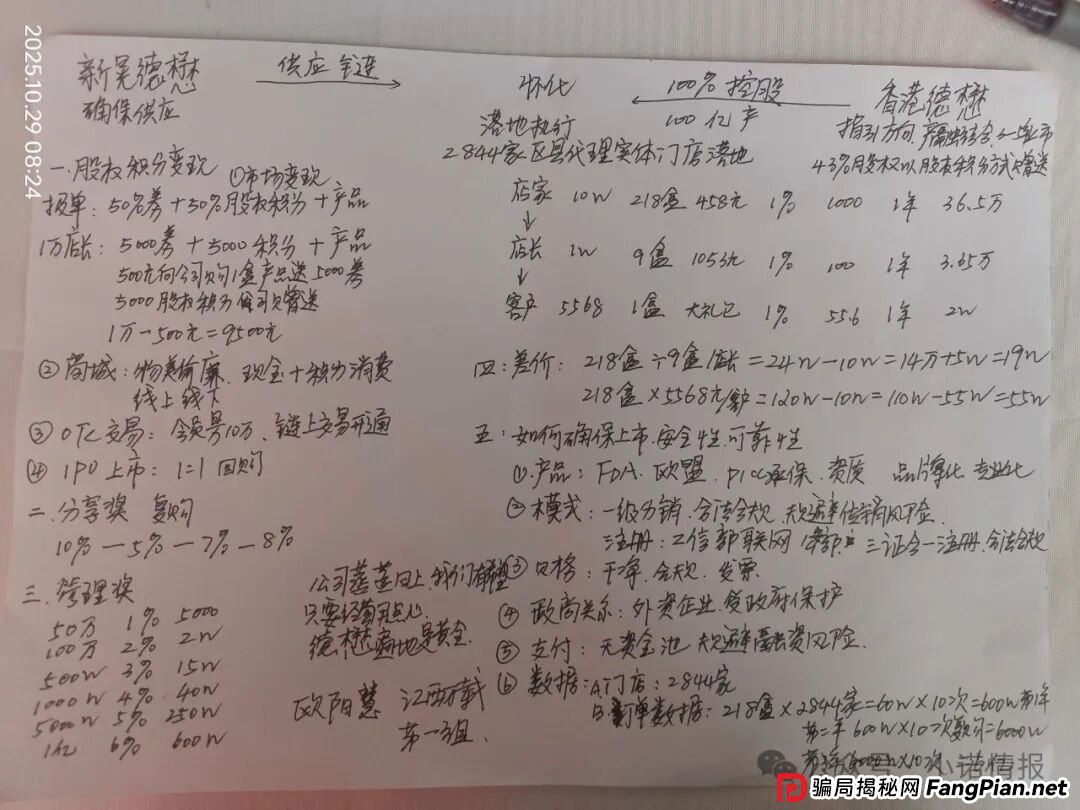 2025.10.29 08:24
新昊德懋 供应链
确保供应
怀化 100%控股 香港德懋
落地执行 100亿产
2844家区县代理实体门店落地
43%股权以股权积分方式赠送
一.股权积分变现 ①市场变现
报单：50%券+50%股权积分+产品
1万店长：5000券+5000积分+产品
500元向公司购1盒产品送5000券
5000股权积分公司赠送
1万-500元=9500元
②商城：物美价廉、现金+积分消费
线上线下
③OTC交易：会员号10万、链上交易开通
④IPO上市：1=1回购
二.分享奖 复购
10%—5%—7%—8%
三.管理奖
50万 1% 5000
100万 2% 2W
500W 3% 15W
1000W 4% 40W
5000W 5% 250W
1亿 6% 600W
店家 10W 218盒 458元 1% 1000 1年 36.5万
店长 1W 9盒 1053元 1% 100 1年 3.65万
客户 5568 1盒 大礼包 1% 55.6 1年 2W
四:差价: 218盒÷9盒/店长=24W-10W=14万+5W=19W
218盒×5568元/客户=120W-10W=110W-55W=55W
五:如何确保上市.安全性.可靠性
①.产品：FDA.欧盟.PICC承保.资质 品牌化 专业化
②模式：一级分销.合法合规.规避传销风险.
注册：工信部联网 三证合一注册.合法合规
③ 干净.合规.发票
④政商关系：外资企业.受政府保护
⑤支付：无资金池 规避融资风险.
⑥数据：A门店：2844家
B订单数据：218盒×2844家=60W×10次=600W第1年
第二年600W×10次复购=6000W
公司蒸蒸日上.我们
只要经营用点心.
德懋遍地是黄金.
欧阳慧 江西
第一组.
公众号·小诺情报
骗局揭秘网 FangPian.net